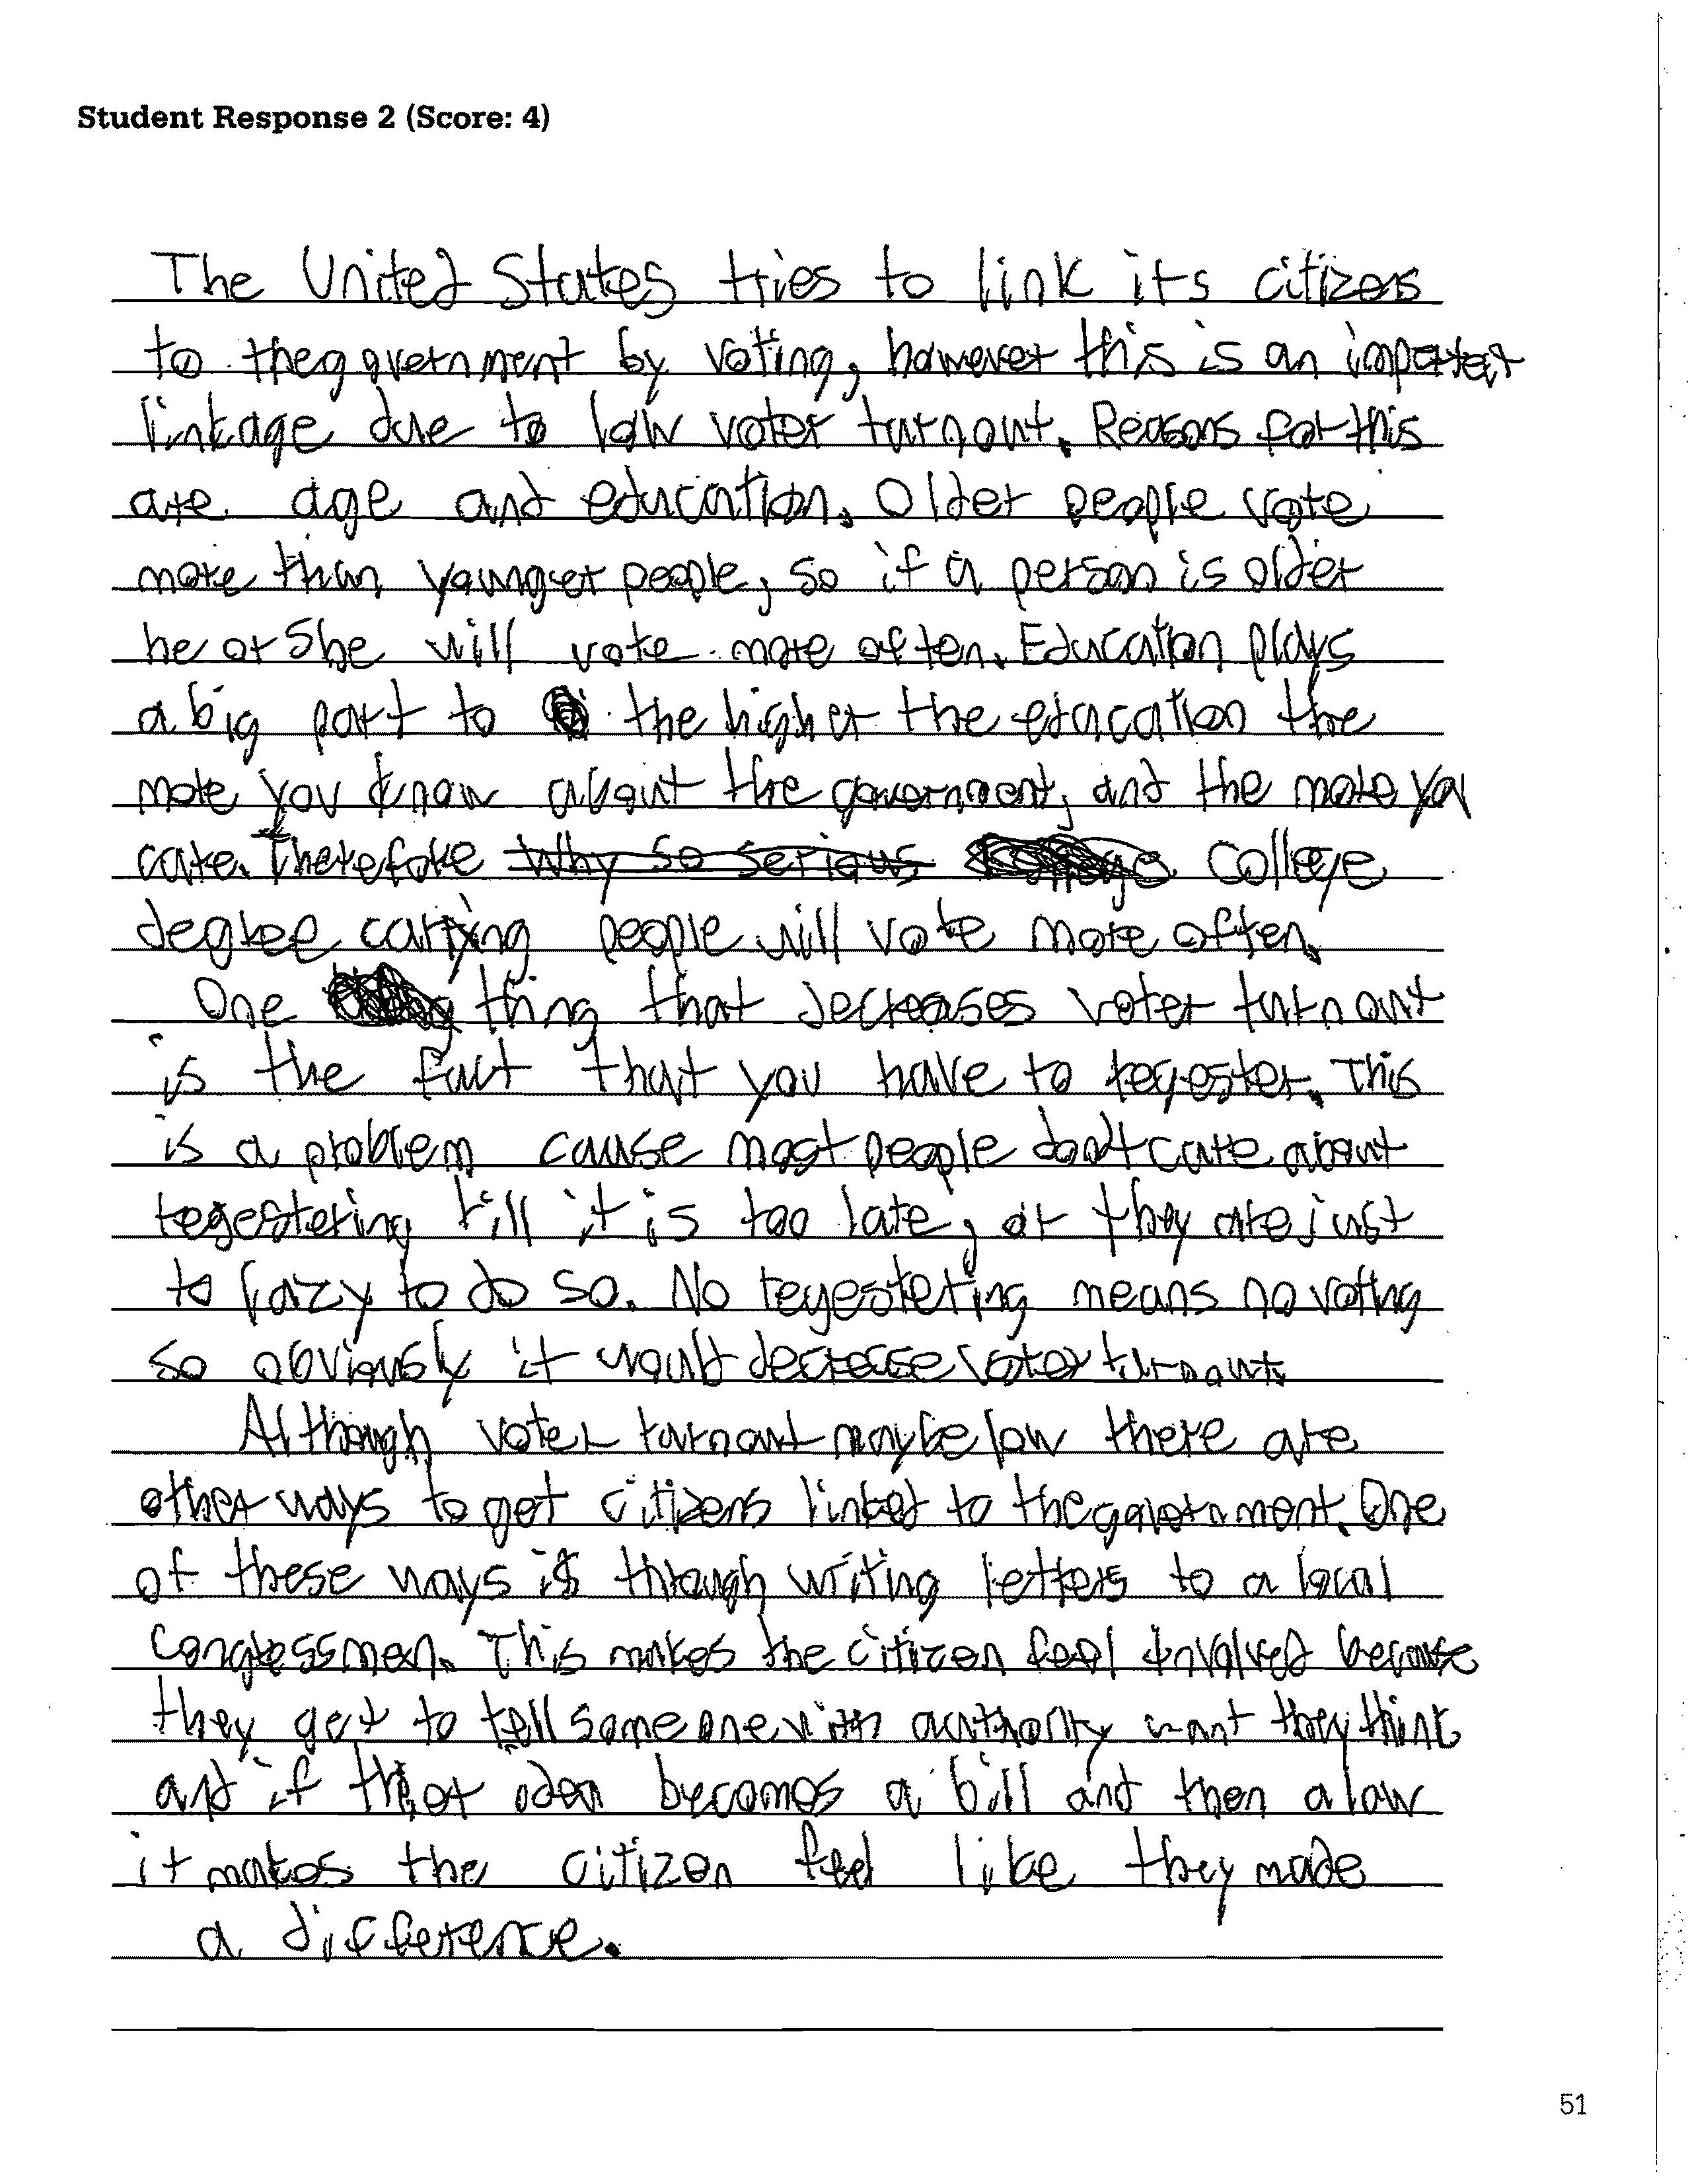 Student Response 2 (Score: 4)
The United States tries to link its citizens
to the government by voting, however this is an imperfect
linkage due to low voter turnout. Reasons for this
are age and education. Older people vote
more than younger people, so if a person is older
he or she will vote more often. Education plays
a big part to the higher the education the
more you know about the government, and the more you
care. Therefore Why so serious College
degree carrying people will vote more often.
One thing that decreases voter turnout
is the fact that you have to regester. This
is a problem cause most people don't care about
regestering till it is too late, or they are just
to lazy to do so. No regestering means no voting
so obviously it would decrease voter turnout.
Although voter turnout may be low there are
other ways to get citizens linked to the government. One
of these ways is through writing letters to a local
congressmen. This makes the citizen feel involved because
they get to tell someone with authority what they think
and if their idea becomes a bill and then a law
it makes the citizen feel like they made
a difference.
51